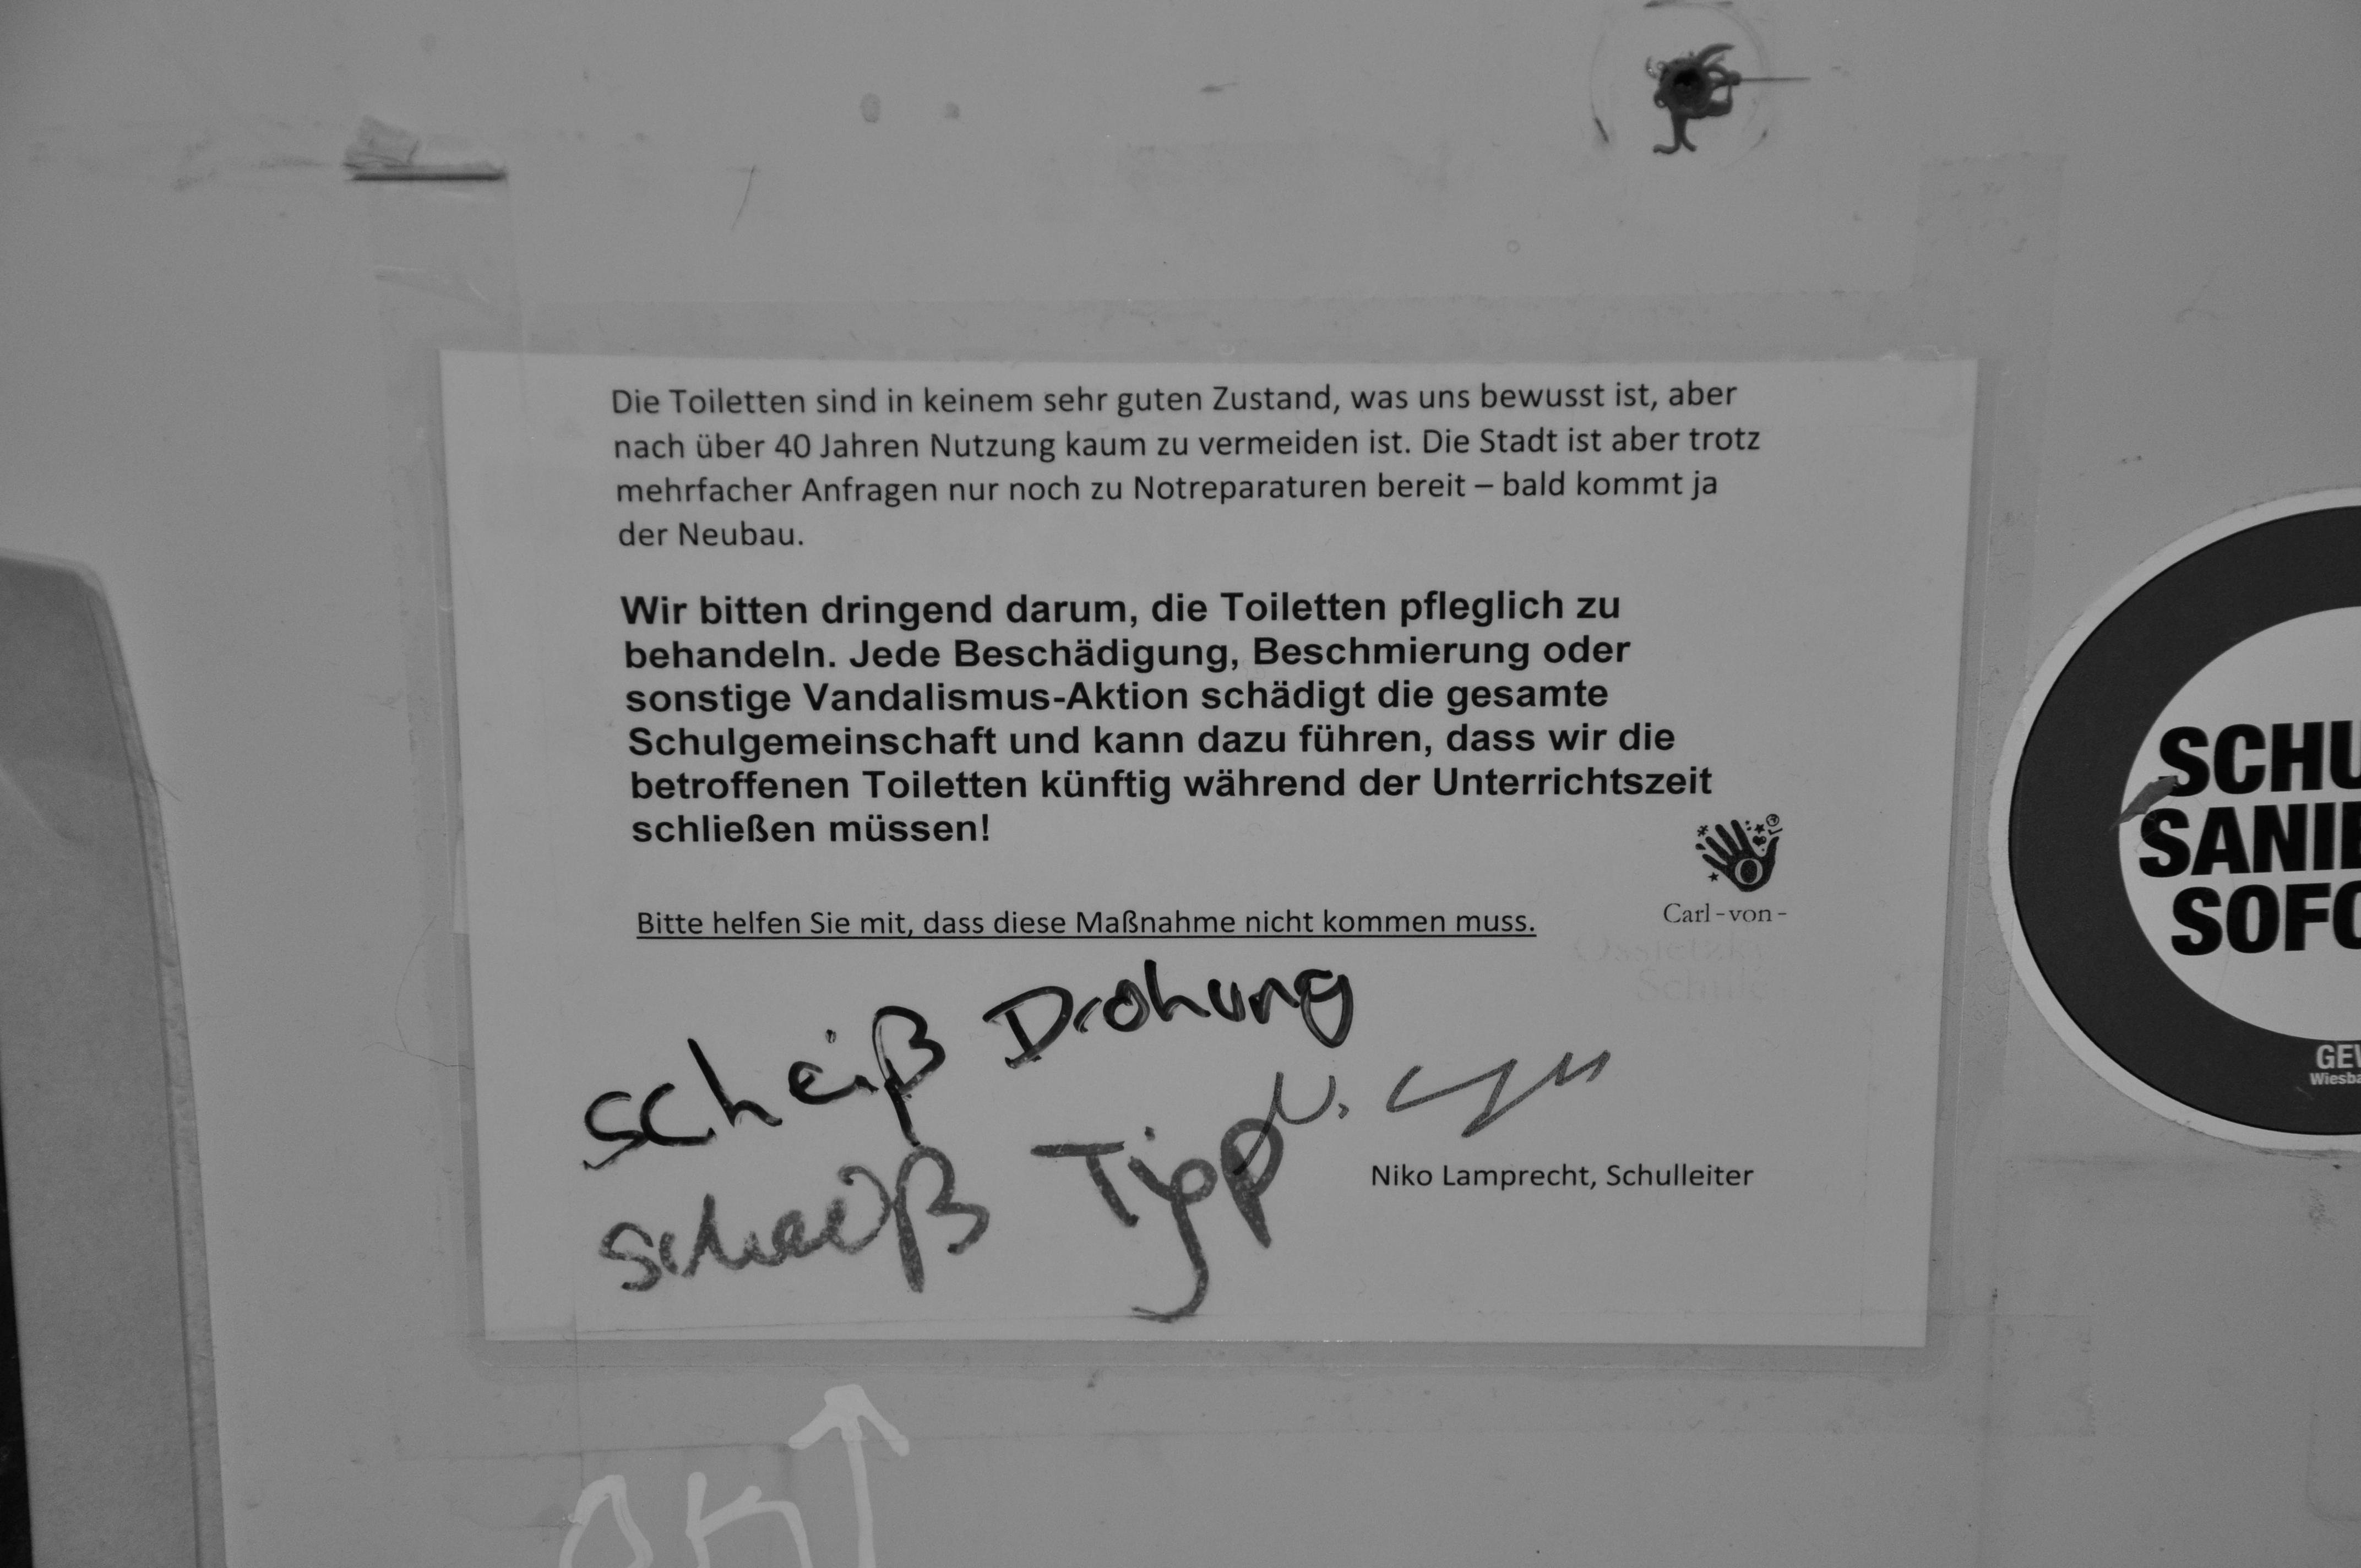 Die Toiletten sind in keinem sehr guten Zustand, was uns bewusst ist, aber
nach über 40 Jahren Nutzung kaum zu vermeiden ist. Die Stadt ist aber trotz
mehrfacher Anfragen nur noch zu Notreparaturen bereit – bald kommt ja
der Neubau.
Wir bitten dringend darum, die Toiletten pfleglich zu
behandeln. Jede Beschädigung, Beschmierung oder
sonstige Vandalismus-Aktion schädigt die gesamte
Schulgemeinschaft und kann dazu führen, dass wir die
betroffenen Toiletten künftig während der Unterrichtszeit
schließen müssen!
Carl-von-
Ossietzky
Schule
Bitte helfen Sie mit, dass diese Maßnahme nicht kommen muss.
scheiß Drohung
scheiß Tipp
Niko Lamprecht, Schulleiter
OK
SCHU
SANIE
SOFO
GEW
Wiesba